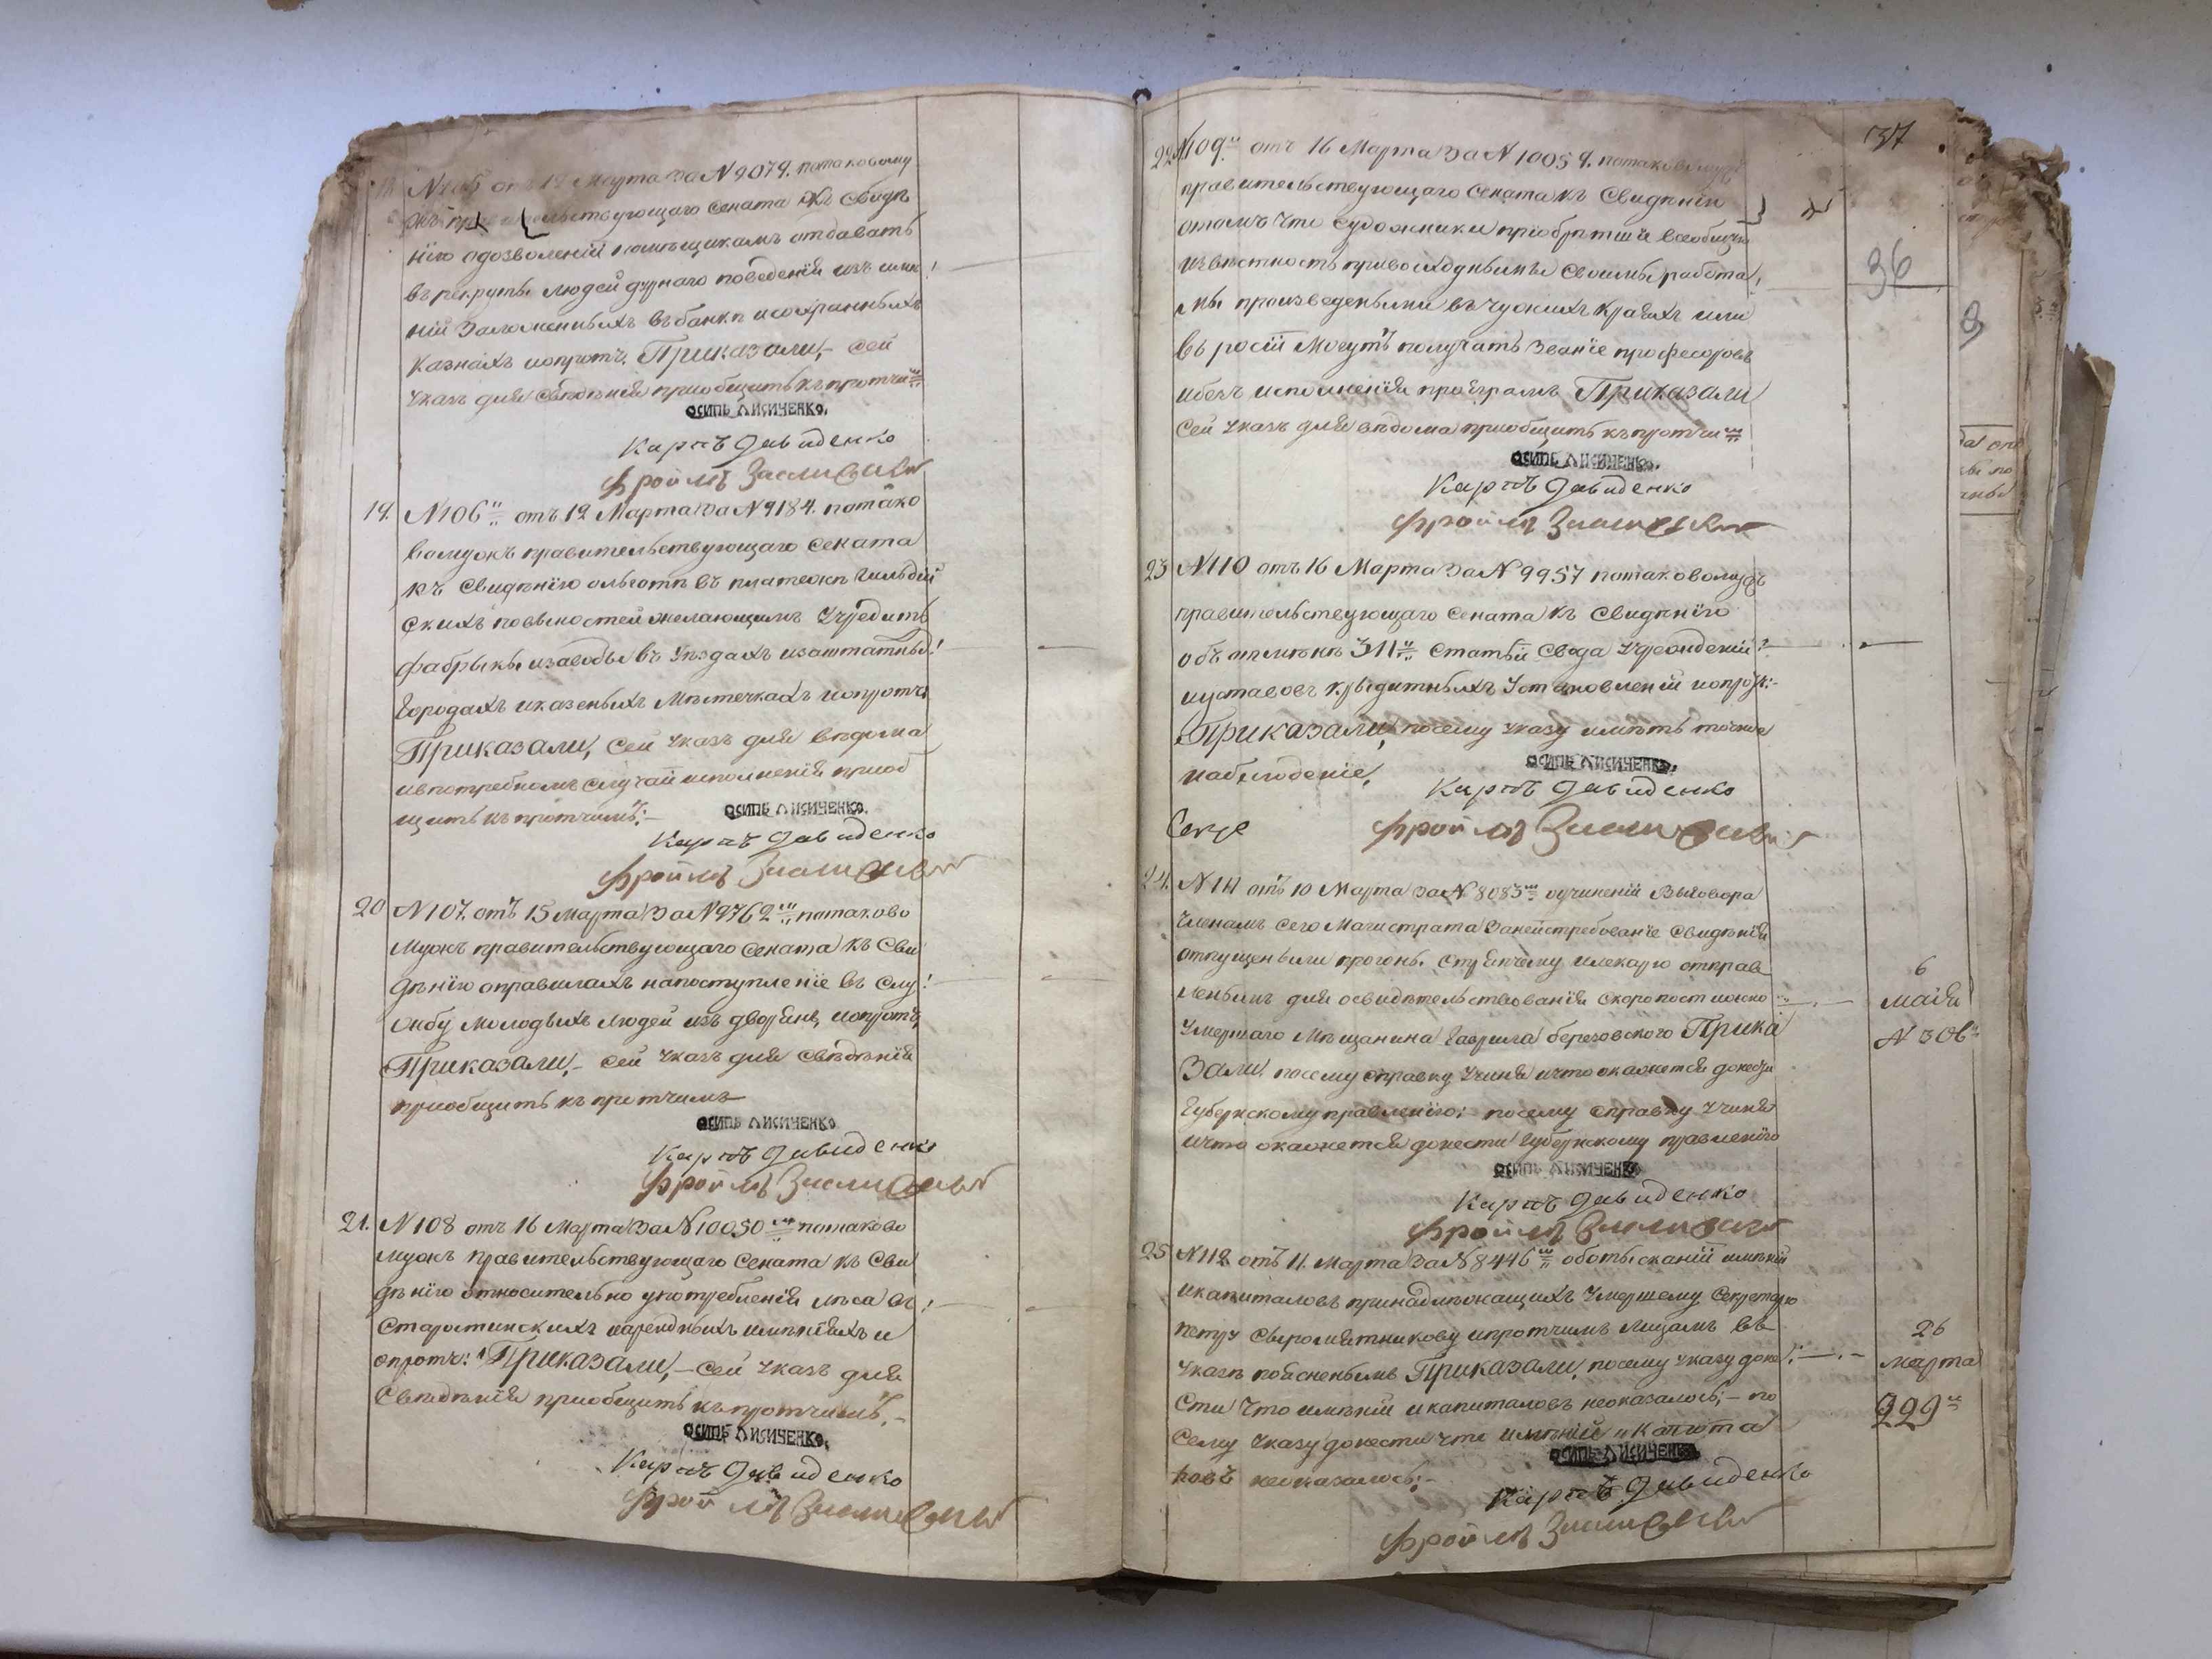 N 105 отъ 12 Марта За N 9079. потаковому
жъ правительствующаго Сената къ Свидѣ
нію одозволеніи помѣщикамъ отдавать
въ рекруты людей дурнаго поведенія изъ имѣ
ній Заложенныхъ въ банкѣ исохранныхъ
казнахъ ипротч. Приказали,- Сей
указъ для Свѣденія приобщить къ протчимъ
осипъ Лисиченко.
Карпъ Давиденко
Фроимъ
19. N 106 отъ 12 Марта За N 9184. потако
вомужъ правительствующаго Сената
къ Свидѣнію ольготѣ въ платежѣ Гильдей
скихъ повиностей желающимъ Учредить
фабрыки изаводы въ Уѣздахъ изаштатныхъ
Городахъ иказеныхъ Мѣстечкахъ ипротч
Приказали, Сей указъ для вѣдома
ивпотребномъ случаи исполненія приоб
щить къ протчимъ:-
осипъ Лисиченко.
Карпъ Давиденко
Фроимъ
20 N 107. отъ 15 Марта За N 9762 потаково
мужъ правительствующаго Сената къ Сви
дѣнію оправилахъ напоступленіе въ Слу
жбу молодыхъ людей изъ дворянъ, ипротч,
Приказали,- Сей указъ для Свѣденія
приобщить къ протчимъ
осипъ Лисиченко
Карпъ Давиденко
Фроимъ
21. N 108 отъ 16 Марта За N 10050 потаково
мужъ правительствующаго Сената къ Сви
дѣнію относительно употребленія лѣса въ
Старостинскихъ иарендныхъ имѣніяхъ и
опротч: Приказали,- Сей указъ для
Свѣденія приобщить къ протчимъ,-
осипъ Лисиченко.
Карпъ Давиденко
Фроимъ
137
36
22 N 109 отъ 16 Марта За N 10054. потаковомужъ
правительствующаго Сената къ Свидѣнію
отомъ что художники приобрѣтшіи всеобщую
извѣстность превосходными своими работа
мы произведеными въ чужихъ краяхъ или
въ росіи Могутъ получать Званіе професоровъ
ибезъ исполненія програмъ Приказали
Сей указъ для вѣдома приобщить къ протчимъ
осипъ Лисиченко.
Карпъ Давиденко
Фроимъ
23 N 110 отъ 16 Марта За N 9957 потаковомужъ
правительствующаго Сената къ Свидѣнію
объ отмѣнѣ 311 Статьи Свода Учрежденій
иуставовъ Кредитныхъ Установленій ипроч:-
Приказали, посему указу имѣть точное
наблюденіе,
осипъ Лисиченко.
Карпъ Давиденко
Фроимъ
24. N 111 отъ 10 Марта За N 8083 оучиненіи Выговора
членамъ сего Магистрата Занейстребованіе Свидѣнія
отпущены ли прогоны Стряпчему илекарю отправ
леннымъ для освидѣтельствованія Скоропостижно
Умершаго Мѣщанина Гаврила березовского Прика
Зали, посему справку Учиня ичто окажется донести
Губернскому правленію: посему справку Учиня
ичто окажется донести Губернскому правленію
6
маія
N 306
осипъ Лисиченко
Карпъ Давиденко
Фроимъ
25 N 112 отъ 11. Марта За N 8446 оботысканіи имѣній
икапиталовъ принадлѣжащихъ Умершему Секретарю
петру Сыромятникову ипротчимъ лицамъ въ
указѣ поясненымъ Приказали, посему указу доне
Сти что имѣній икапиталовъ неоказалось,- по
Сему указу донести что имѣній и Капита
ловъ неоказалось:-
26
марта
229
осипъ Лисиченко
Карпъ Давиденко
Фроимъ